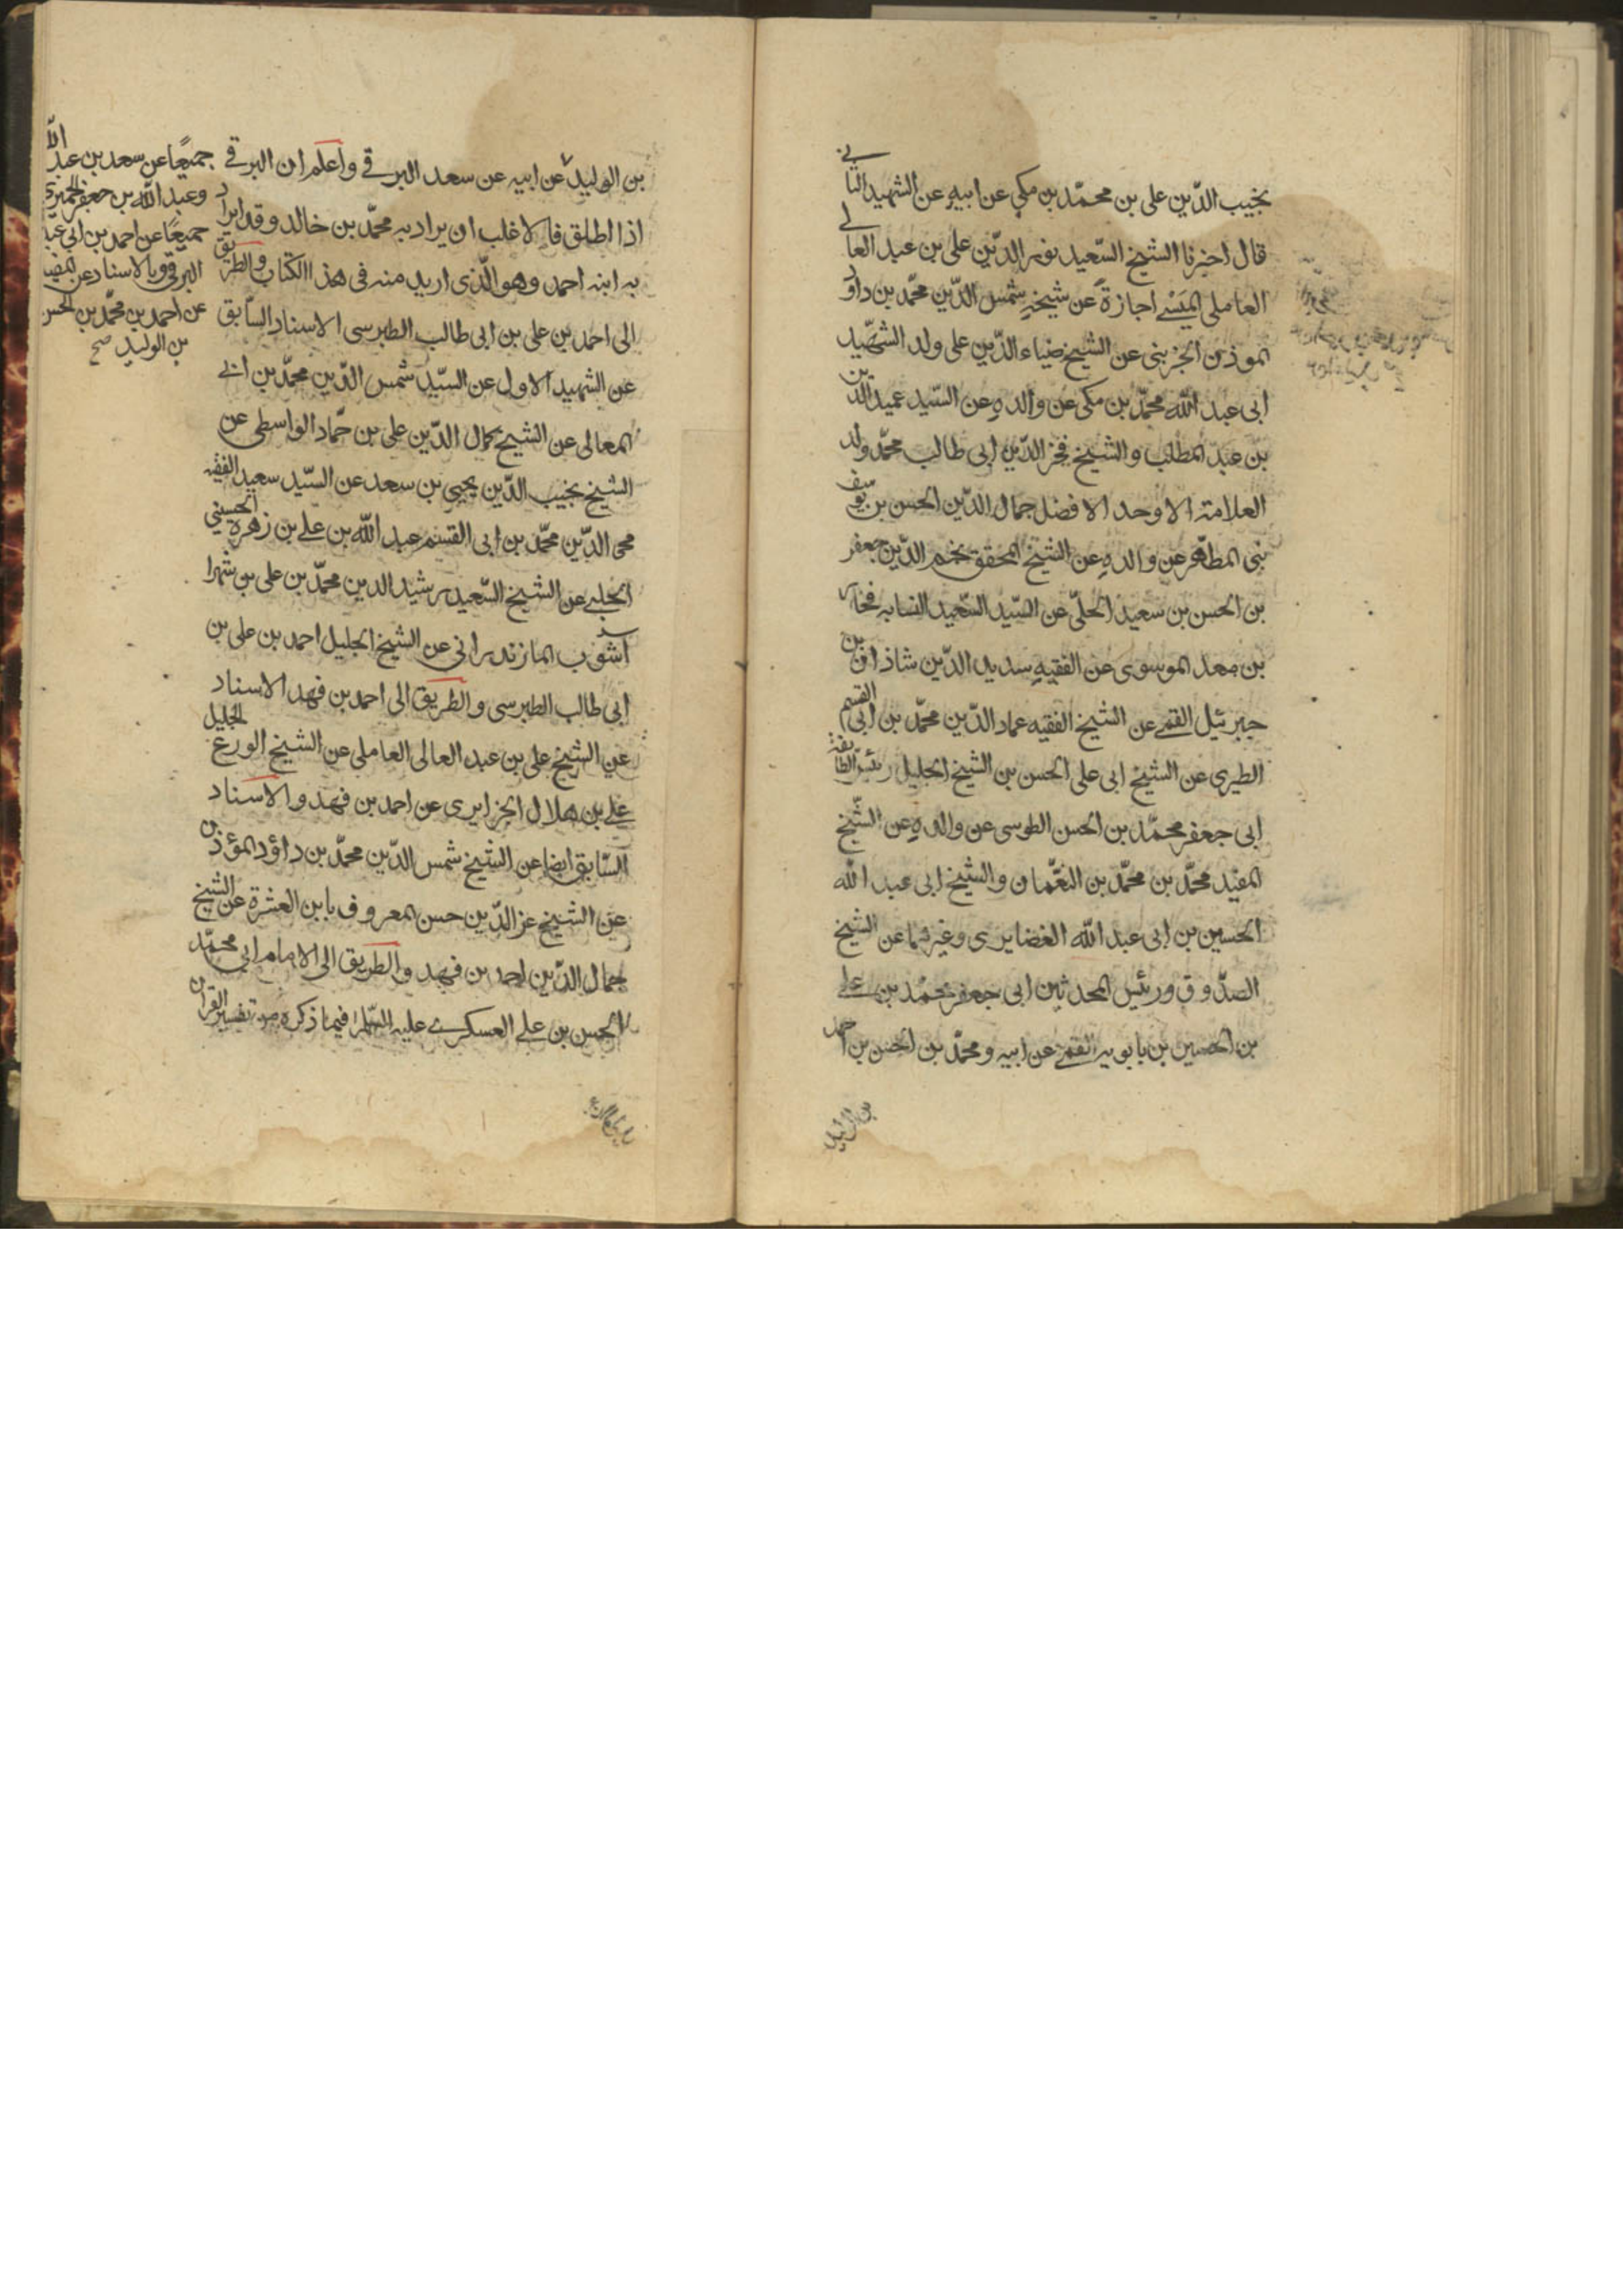 نجيب الدّين على بن محمّد بن مكى عن ابيه عن الشهيد الثانى
قال اخبرنا الشيخ السّعيد نور الدّين على بن عبد العالى
العاملى الميسے اجازة عن شيخه شمس الدّين محمّد بن داود
الموذن الجزينى عن الشيخ ضياء الدّين على ولد الشهيد
ابى عبد الله محمّد بن مكى عن والده عن السّيد عميد الدين
بن عبد المطلب والشيخ فخر الدّين ابى طالب محمّد ولد
العلامة الاوحد الافضل جمال الدّين الحسن بن يوسف
بن المطهر عن والده عن الشيخ المحقق نجم الدّين جعفر
بن الحسن بن سعيد الحلّى عن السّيد السّعيد النسابه فخار
بن معد الموسوى عن الفقيه سديد الدّين شاذان بن
جبرئيل القمے عن الشيخ الفقيه عماد الدّين محمّد بن ابى القسم
الطبرى عن الشيخ ابى على الحسن بن الشيخ الجليل رئيس الطائفة
ابى جعفر محمّد بن الحسن الطوسى عن والده عن الشيخ
المفيد محمّد بن محمّد بن النعمان والشيخ ابى عبد الله
الحسين بن ابى عبد الله الغضايرى وغيرهما عن الشيخ
الصدّوق ورئيس المحدثين ابى جعفر محمّد بن علے
بن الحسين بن بابويه القمے عن ابيه ومحمّد بن الحسن بن احمد
بن الوليد
بن الوليد عن ابيه عن سعد البرقے واعلم ان البرقے
اذا اطلق فالاغلب ان يراد به محمّد بن خالد وقد ايراد
به ابنه احمد وهو الّذى اريد منه فى هذا الكتاب والطريق
الى احمد بن على بن ابى طالب الطبرسى الاسناد السّابق
عن الشهيد الاول عن السّيد شمس الدّين محمّد بن ابے
المعالى عن الشيخ كمال الدّين على بن حمّاد الواسطى عن
الشيخ نجيب الدّين يحيى بن سعد عن السّيد سعيد الفقيه
محى الدّين محمّد بن ابى القسم عبد الله بن علے بن زهره الحسينى
الحلبے عن الشيخ السّعيد رشيد الدين محمّد بن على بن شهرا
آشوب المازندرانى عن الشيخ الجليل احمد بن على بن
ابى طالب الطبرسى والطريق الى احمد بن فهد الاسناد
عن الشيخ على بن عبد العالى العاملى عن الشيخ الورع الجليل
علے بن هلال الجزايرى عن احمد بن فهد والاسناد
السّابق ايضا عن الشيخ شمس الدّين محمّد بن داؤد المؤذن
عن الشيخ عز الدّين حسن المعروف بابن العشرة عن الشيخ
جمال الدّين احمد بن فهد والطريق الى الامام ابى محمّد
الحسن بن علے العسكرے عليه السّلم فيما ذكره من تفسير القران
جميعًا عن سعد بن عبد الله
وعبد الله بن جعفر الحميرى
جميعًا عن احمد بن ابى عبد
البرقى وبالاسناد عن المفيد
عن احمد بن محمّد بن الحسن
بن الوليد صح